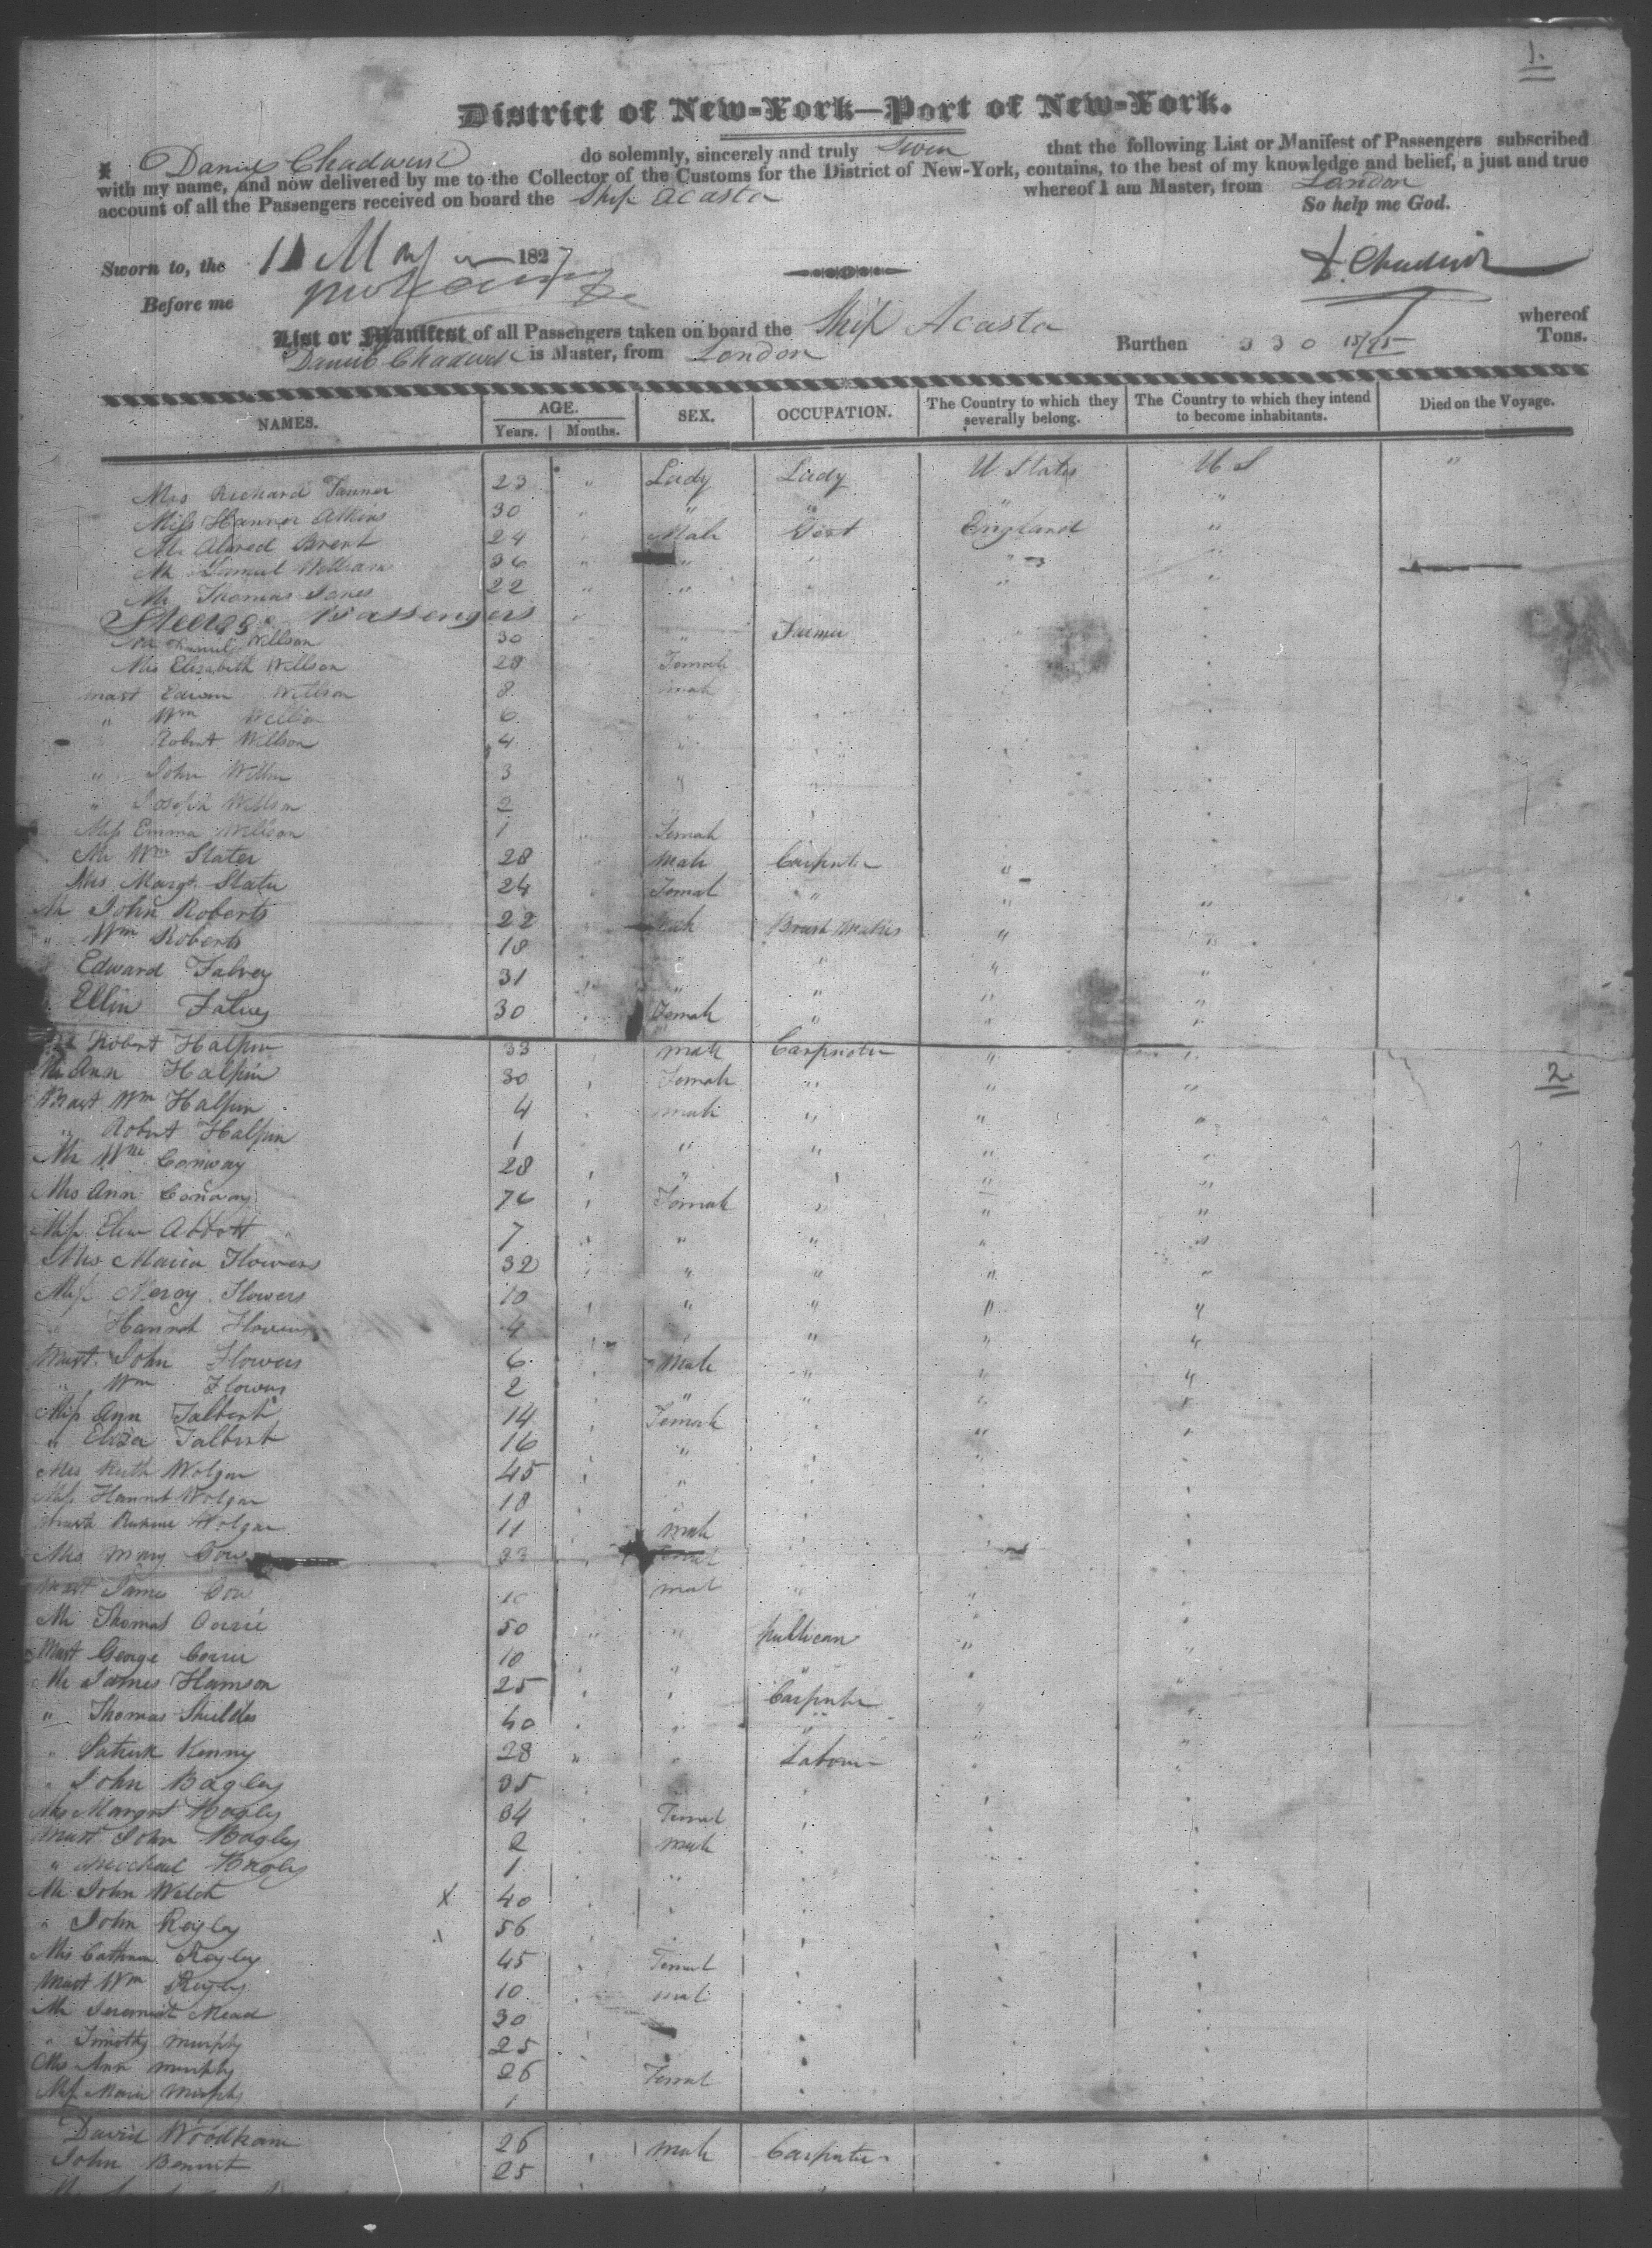 1.
District of New-York—Port of New-York.
I, Daniel Chadwick do solemnly, sincerely and truly Swear that the following List or Manifest of Passengers subscribed
with my name, and now delivered by me to the Collector of the Customs for the District of New-York, contains, to the best of my knowledge and belief, a just and true
account of all the Passengers received on board the Ship Acasta whereof I am Master, from London
So help me God.
Sworn to, the 11 May 1827
D. Chadwick
Before me
List or Manifest of all Passengers taken on board the Ship Acasta whereof
Daniel Chadwick is Master, from London Burthen 330 15/95 Tons.
NAMES. AGE. Years. Months. SEX. OCCUPATION. The Country to which they severally belong. The Country to which they intend to become inhabitants. Died on the Voyage.
Mrs Richard Tanner 23 " Lady Lady U. States U S "
Miss Hannor Atkins 30 " " " " "
Mr Alfred Brent 24 " Male Gent England "
Mr Samuel William 36 " " " " "
Mr Thomas Jones 22 " " " "
Steerage Passengers "
Mr Willson 30 " Farmer
Mrs Elizabeth Willson 28 Female
Mast Edwin Willson 8 male
" Wm Willson 6
Robert Willson 4
" John Willson 3 "
" Joseph Willson 2 "
Miss Emma Willson 1 Female
Mr Wm Slater 28 Male Carpenter "
Mrs Margt. Slater 24 Female " "
Mr John Roberts 22 Male Brush Maker " "
" Wm Roberts 18 " " "
Edward Falvey 31 " " " "
Ellin Falvey 30 Female " " "
Mr Robert Halpin 33 male Carpenter " "
Mrs Ann Halpin 30 Female " " "
2
Mast Wm Halpin 4 male " " "
" Robert Halpin 1 " " " "
Mr Wm Conway 28 " " " "
Mrs Ann Conway 76 Female " " "
Miss Eliza Abbott 7 " " " "
Mrs Maria Flowers 32 " " " "
Miss Mercy Flowers 10 " " " "
Hannah Flowers 4 " " "
Mast. John Flowers 6 Male " " "
" Wm Flowers 2 " " " "
Miss Ann Talbert 14 Female " "
" Eliza Talbert 16 "
Mrs Ruth Wolgar 45 "
Miss Hannah Wolgar 18 "
Wolgar 11 male
Mrs Mary Cow 33
Mast James Cow 10 mal " "
Mr Thomas Corrie 50 " " publican " "
Mast George Corrie 10 " " "
Mr James Hamson 25 " Carpenter " "
" Thomas Shields 40 " " " "
" Patrick Kenny 28 " " Labourer
" John Bagley 35
Mrs Margret Bagley 34 Femal
Mast John Bagley 2 male
" Michael Bagley 1 "
Mr John Welch x 40
" John Regley 56
Mrs Cathrine Regley 45 Femal
Mast Wm Regley 10 mal
Mr Jeremiah Mead 30
" Timothy Murphy 25
Mrs Ann Murphy 26 Femal
Miss Maria Murphy 1
David Woodham 26 male Carpenter
John Bennit 25